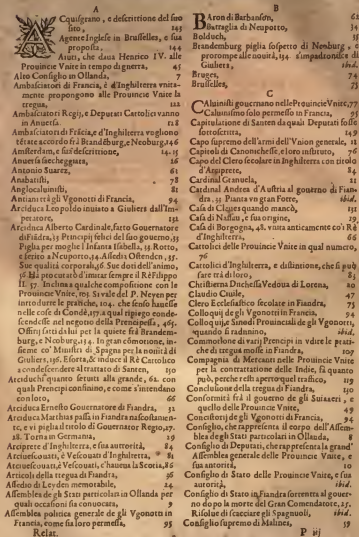 A
Acquisgrano, e descrittione del suo
sito, 145
Agente Inglese in Brusselles, e sua
proposta, 144
Aiuti, che daua Henrico IV. alle
Prouincie Vnite in tempo di guerra, 45
Alto Consiglio in Ollanda, 7
Ambasciatori di Francia, e d'Inghilterra vnita-
mente propongono alle Prouincie Vnite la
tregua, 122
Ambasciatori Regij, e Deputati Cattolici vanno
in Anuersa, 128
Ambasciatori di Frãcia, e d'Inghilterra vogliono
tẽtare accordo frà Brãdẽburg, e Neoburg, 146
Amsterdam, e sua descrittione, 14.15
Anuersa secheggiata, 26
Antonio Suarez, 61
Anabatisti, 78
Anglocaluinisti, 81
Antiani trà gli Vgonotti di Francia, 94
Arciduca Leopoldo inuiato a Giuliers dall'Im-
peratore, 132
Arciduca Alberto Cardinale, fatto Gouernatore
di Fiãdra, 33 Principij felici del suo gouerno, 33
Piglia per moglie l'Infanta Isabella, 33 Rotto,
e ferito a Neoporto, 34 Assedia Ostenden, 35.
Sue qualità corporali, 56 Sue doti dell'animo,
56 Hà procurato d'imitar sempre il Rè Filippo
II. 57. Inclina a qualche compositione con le
Prouincie Vnite, 105. Si vale del P. Neyen per
introdurre le pratiche, 104. che senso hauesse
nelle cose di Condè, 157. a qual ripiego conde-
scendesse nel negotio della Principessa, 165.
Offitij fatti dal lui per la quiete frà Brandem-
burg, e Neoburg, 134. In gran cõmotione, in-
sieme co' Ministri di Spagna per la nouità di
Giuliers, 136. Esorta, & induce il Rè Cattolico
a condescendere al trattato di Santen, 150
Arciduchi quanto sentiti alla grande, 62. con
quali Prencipi confinino, e come s'intendano
con loro, 66
Arciduca Ernesto Gouernatore di Fiandra, 32
Arciduca Matthias passa in Fiandra nascostamen-
te, e vi piglia il titolo di Gouernator Regio, 27.
28. Torna in Germania, 29
Arciprete d'Inghilterra, e sua autorità, 84
Arciuescouati, è Vescouati d'Inghilterra, 81
Arciuescouati, è Vescouati, c'haueua la Scotia, 86
Articoli della tregua di Fiandra, 36
Assedio di Leyden memorabile, 24
Assemblea de gli Stati particolari in Ollanda per
quali occasioni sia conuocata, 9
Assemblea politica generale de gli Vgonotti in
Francia, come sia loro permessa, 95
Relat.
B
BAron di Barbanson, 61
Battaglia di Neuporto, 34
Bolduch, 55
Brandemburg piglia sospetto di Neuburg, e
prorompe alle nouità, 134. s'impadronisce di
Giuliers, ibid.
Bruges, 74
Brusselles, 73
C
CAluinisti gouernano nelle Prouincie Vnite, 77
Caluinismo solo permesso in Francia, 95
Capitulatione di Santen da quali Deputati sosse
sottoscritta, 149
Capo supremo dell'armi dell'Vnion generale, 11
Capitoli di Canonichesse, e loro instituto, 76
Capo del Clero secolare in Inghilterra con titolo
d'Arciprete, 84
Cardinal Granuela, 21
Cardinal Andrea d'Austria al gouerno di Fian-
dra, 33. Pianta vn gran Forte, ibid.
Casa di Cleues quando mancò, ibid.
Casa di Nassau, e sua origine, 29
Casa di Borgogna, 48. vnita anticamente co'i Rè
d'Inghilterra, 66
Cattolici delle Prouincie Vnite in qual numero,
76
Cattolici d'Inghilterra, e distintione, che si può
fare trà di loro, 83
Christierna Duchessa Vedoua di Lorena, 20
Claudio Ciuile, 47
Clero Ecclesiastico secolare in Fiandra, 75
Colloquij de gli Vgonotti in Francia, 94
Colloquij, e Sinodi Prouinciali de gli Vgonotti,
quando si radunino, ibid.
Commotione di varij Prencipi in vdire le prati-
che di tregua mosse in Fiandra, 109
Compagnia di Mercanti nelle Prouincie Vnite
per la contrattatione delle Indie, sà quanto
può, perche resti aperto quel traffico, 119
Conclusione della tregua di Fiandra, 130
Conformità frà il gouerno de gli Suizzeri, e
quello delle Prouincie Vnite, 49
Concistorij de gli Vgonotti di Francia, 94
Consiglio, che rappresenta il corpo dell'Assem-
blea degli Stati particolari in Ollanda, 8
Consiglio di Deputati, che rappresenta la grand'
Assemblea generale delle Prouincie Vnite, e
sua autorità, 10
Consiglio di Stato delle Prouincie Vnite, e sua
autorità, ibid.
Consiglio di Stato in Fiandra sottentra al gouer-
no dopo la morte del Gran Comendatore, 25.
Risolue di scacciare gli Spagnuoli, ibid.
Consiglio supremo di Malines, 59
P iij